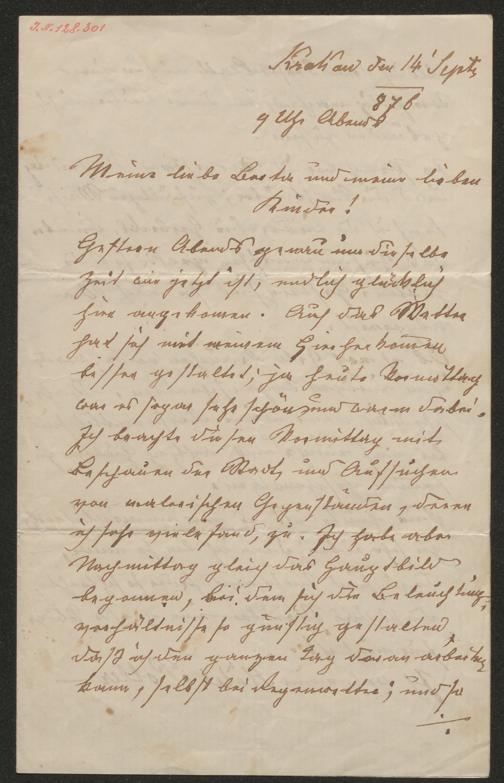 J.N. 128.301
Krakau den 14' Septr
876
9 Uhr Abends
Meine liebe Berta und meine lieben
Kinder!
Gestern Abends genau um dieselbe
Zeit wie jetzt ist, endlich glücklich
hier angekomen. Auch das Wetter
hat sich mit meinem Hierherkommen
besser gestaltet; ja heute Vormittag
war es sogar sehr schön und warm dabei.
Ich brachte diesen Vormittag mit
Beschauen der Stadt und Aufsuchen
von malerischen Gegenständen, deren
ich sehr viele fand, zu. Ich habe aber
Nachmittag gleich das Hauptbild
begonnen, bei dem sich die Beleuchtungs-
verhältnisse so günstig gestalten,
daß ich den ganzen Tag daran arbeiten
kann, selbst bei Regenwetter; und so
./.